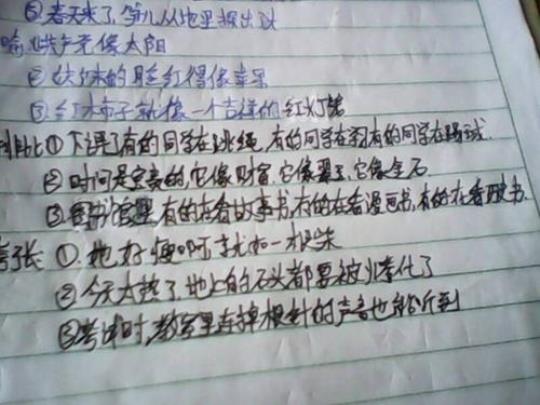 ③春天来了,笋儿从地里探出头
喻①共产党像太阳
②妹妹的脸红得像苹果
③红柿子就像一个吉祥的红灯笼
排比①下课了有的同学在跳绳,有的同学在有的同学在踢球.
②时间是宝贵的,它像财富.它像翡翠,它像金石
③图书馆里,有的在看故事书,有的在看漫画书,有的在看书.
夸张 ①.她好瘦啊就如一根柴
②今天太热了,地上的石头都要被火烤化了
③考试时,教室里连掉根针的声音也能听到